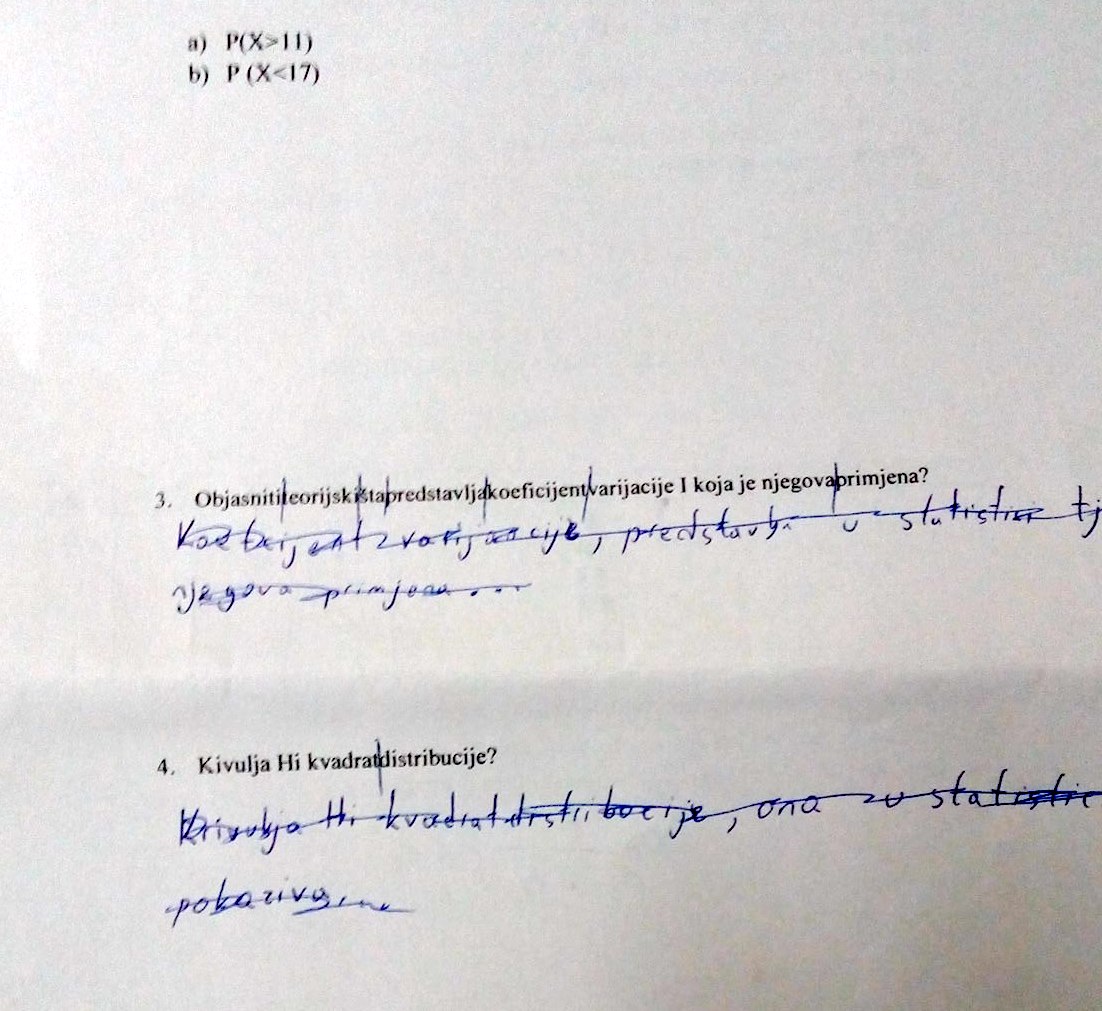 a) P(X>11)
b) P (X<17)
3. Objasnititeorijskištapredstavljakoeficijentvarijacije I koja je njegovaprimjena?
predstavlja u statistici tj
njegova primjena ...
4. Kivulja Hi kvadratdistribucije?
Krivulja Hi kvadrat distribucije, ona u
pokaziva...